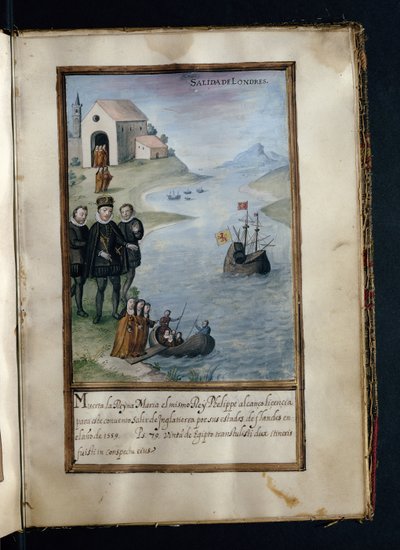 SALIDA DE LONDRES.
Muerta la Reyna Maria el mismo Rey Phelippe alcança licencia
para este convento salir de Inglaterra por sus estados de flandes en
el año de 1559. Ps. 79. Vineã de Egipto transtulisti dux itineris
fuisti in conspectu eius.